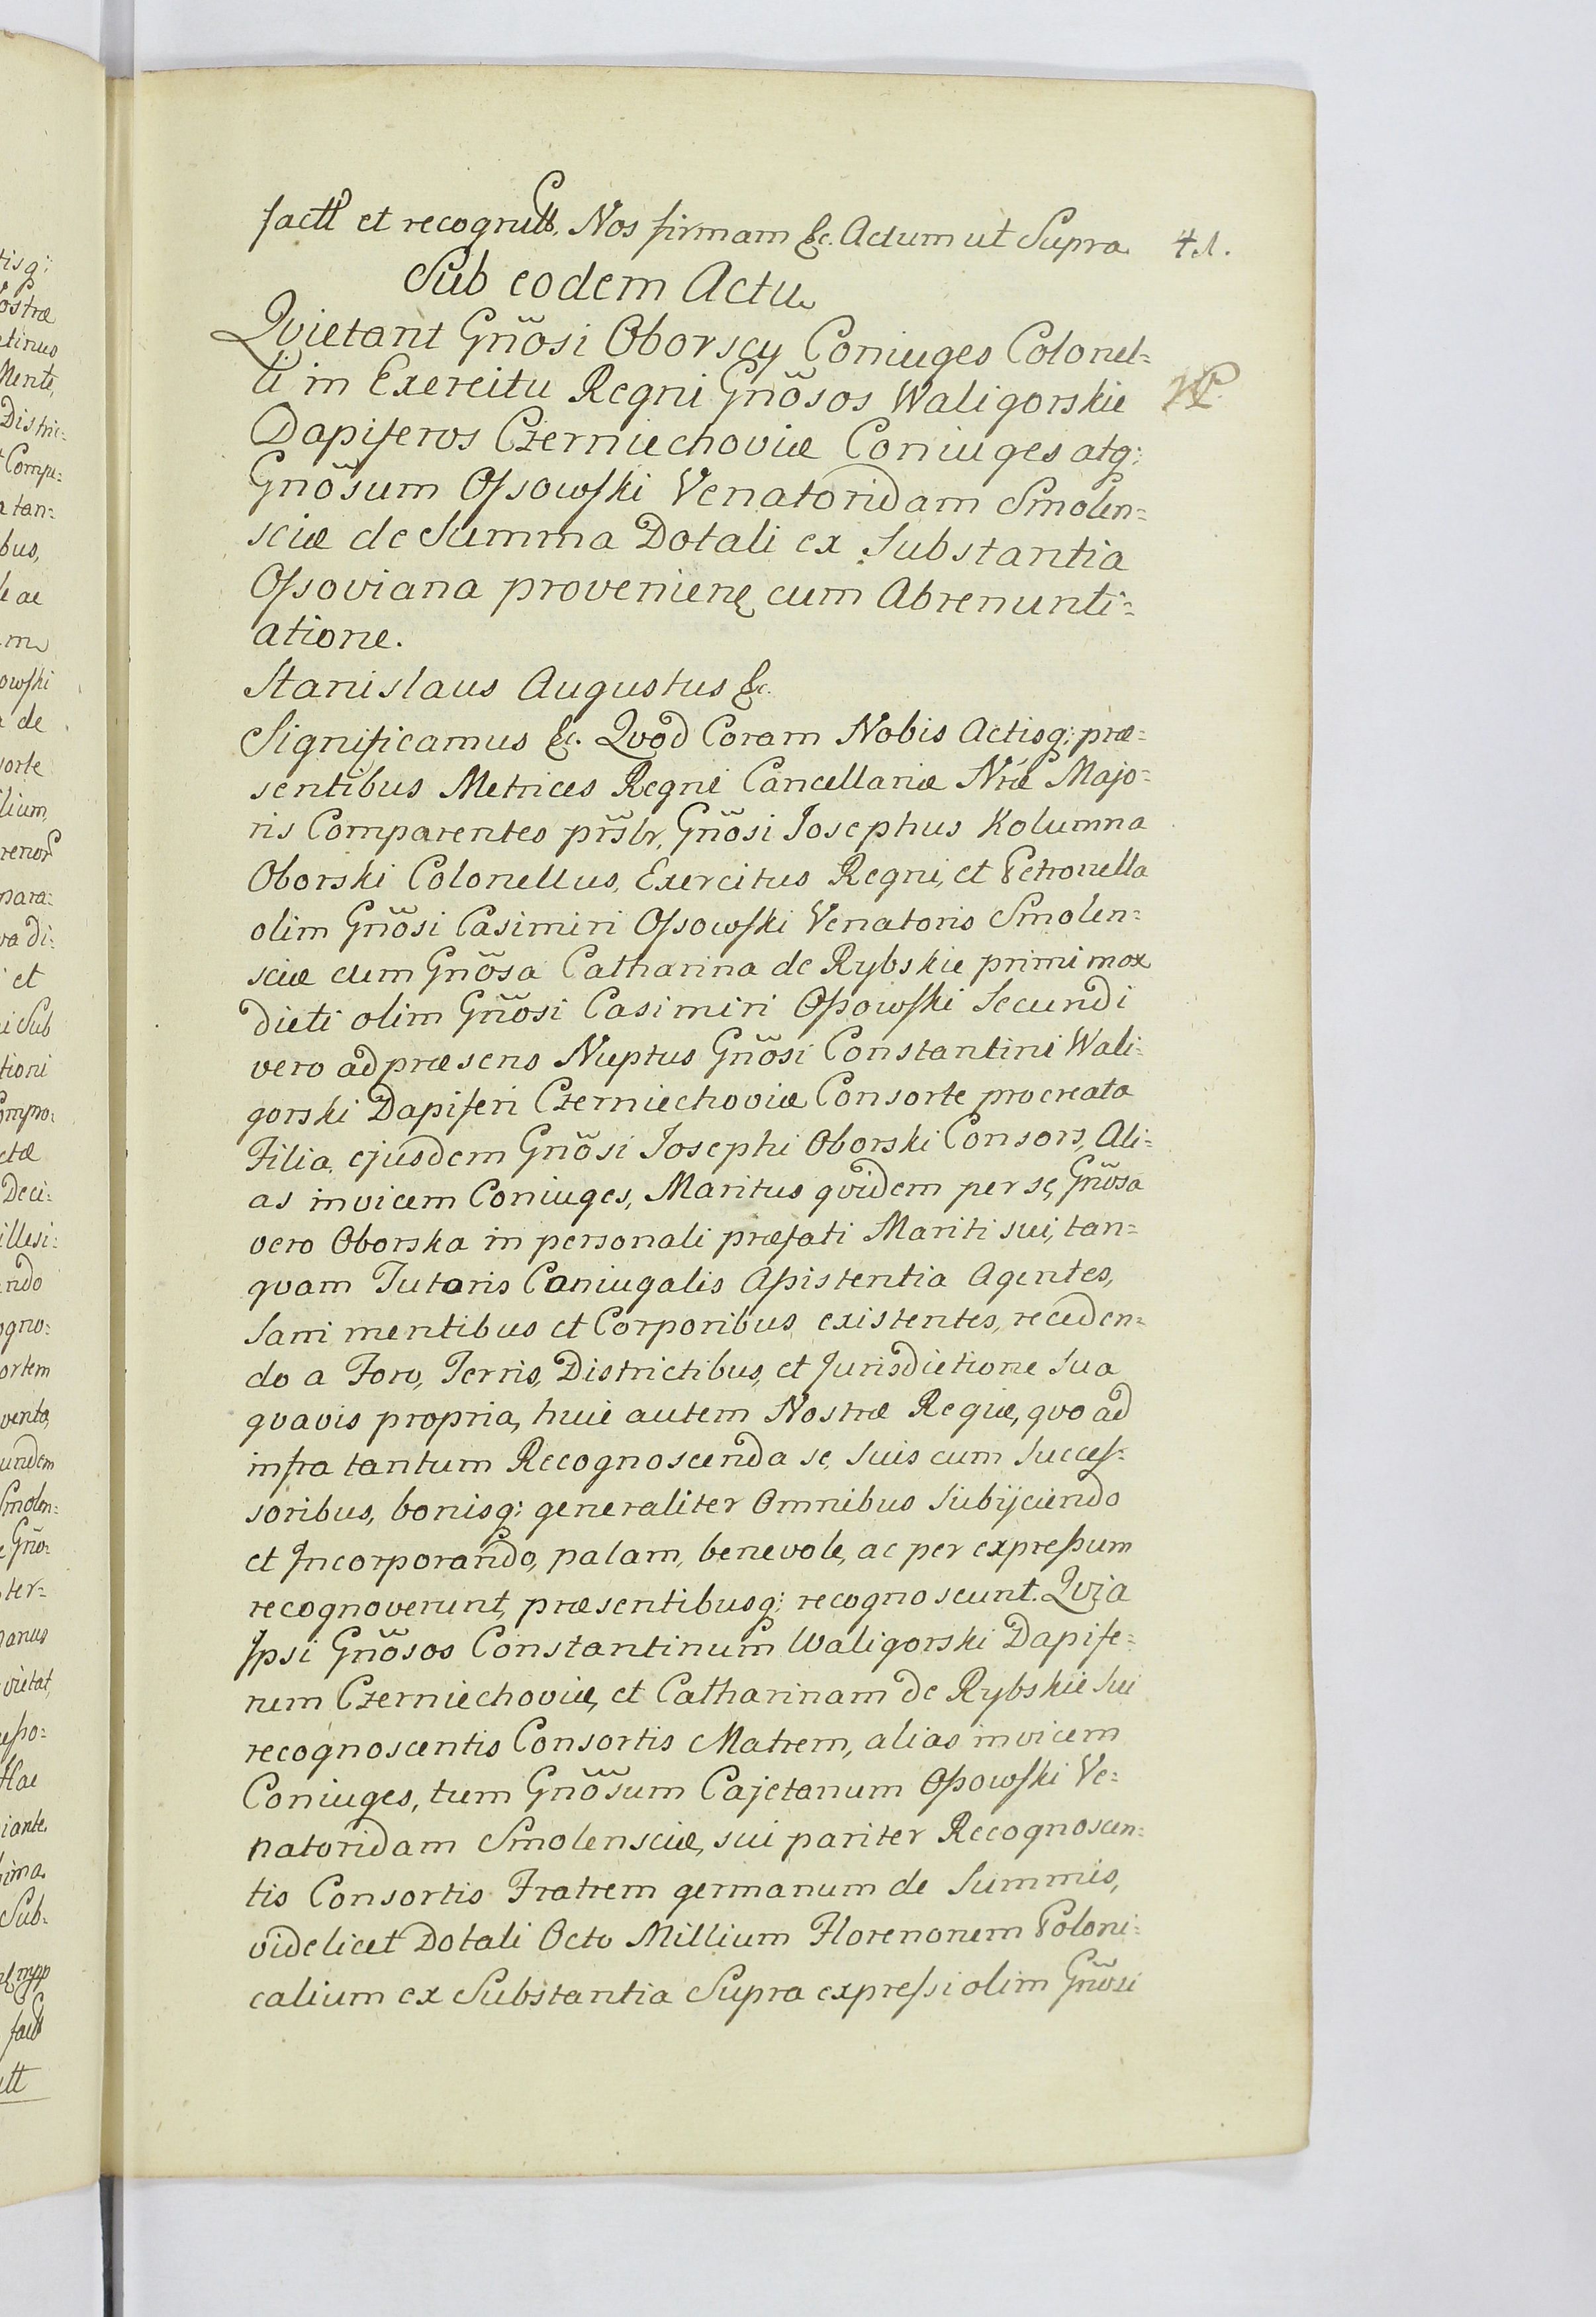 factt et recognitt, Nos firmam &c. Actum ut Supra 41.
Sub eodem Actu
Qvietant Gnõsi Oborscy Coniuges Colonel=
li in Exercitu Regni Gnõsos Waligorskie
Dapiferos Czerniechoviæ Coniuges atq;
Gnõsum Ossowski Venatoridam Smolen=
sciæ de Summa Dotali ex Substantia
Ossoviana provenienę cum Abrenunti=
atione.
Stanislaus Augustus &c.
Significamus &c. Qvod Coram Nobis Actisq; præ=
sentibus Metrices Regni Cancellariæ Nræ Majo=
ris Comparentes prslr, Gnõsi Josephus Kolumna
Oborski Colonellus, Exercitus Regni, et Petronella
olim Gnõsi Casimiri Ossowski Venatoris Smolen=
sciæ cum Gnõsa Catharina de Rybskie primi mox
dicti olim Gnõsi Casimiri Ossowski Secundi
vero ad præsens Nuptus Gnõsi Constantini Wali=
gorski Dapiferi Czerniechoviæ Consorte procreata
Filia, ejusdem Gnõsi Josephi Oborski Consors, Ali=
as invicem Coniuges, Maritus qvidem per se, Gnõsa
vero Oborska in personali præfati Mariti sui, tan=
qvam Tutoris Coniugalis Assistentia Agentes,
Sani mentibus et Corporibus existentes, receden=
do a Foro, Terris, Districtibus, et Jurisdictione Sua
qvavis propria, huic autem Nostræ Regiæ, qvo ad
infra tantum Recognoscenda se, Suis cum Succes=
soribus, bonisq; generaliter Omnibus Subijciendo
et Incorporando, palam, benevole, ac per expressum
recognoverunt, præsentibusq; recognoscunt. Qvia
Ipsi Gnõsos Constantinum Waligorski Dapife=
rum Czerniechoviæ, et Catharinam de Rybskie Sui
recognoscentis Consortis Matrem, alias invicem
Coniuges, tum Gnõsum Cajetanum Ossowski Ve=
natoridam Smolensciæ, sui pariter Recognoscen=
tis Consortis Fratrem germanum de Summis,
videlicet Dotali Octo Millium Florenorum Poloni=
calium ex Substantia Supra expressi olim Gnõsi